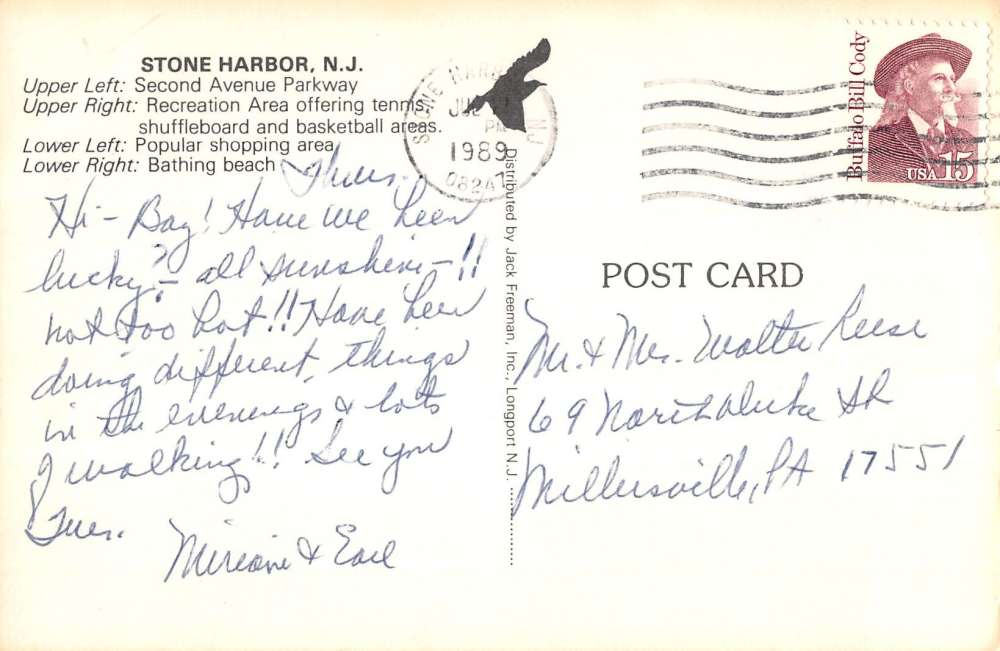 STONE HARBOR, N.J.
Upper Left: Second Avenue Parkway
Upper Right: Recreation Area offering tennis,
shuffleboard and basketball areas.
Lower Left: Popular shopping area
Lower Right: Bathing beach
Thurs.
Hi - Bay! Have we been
lucky? - all sunshine - !!
not too hot!! Have been
doing different things
in the evenings & lots
of walking!! See you
Tues.
Miriam & Earl
Distributed by Jack Freeman, Inc., Longport N.J.
STONE HARBOR NJ
PM
1989
08247
Buffalo Bill Cody
USA 15
POST CARD
Mr. & Mrs. Walter Reese
69 North Duke St
Millersville, PA 17551